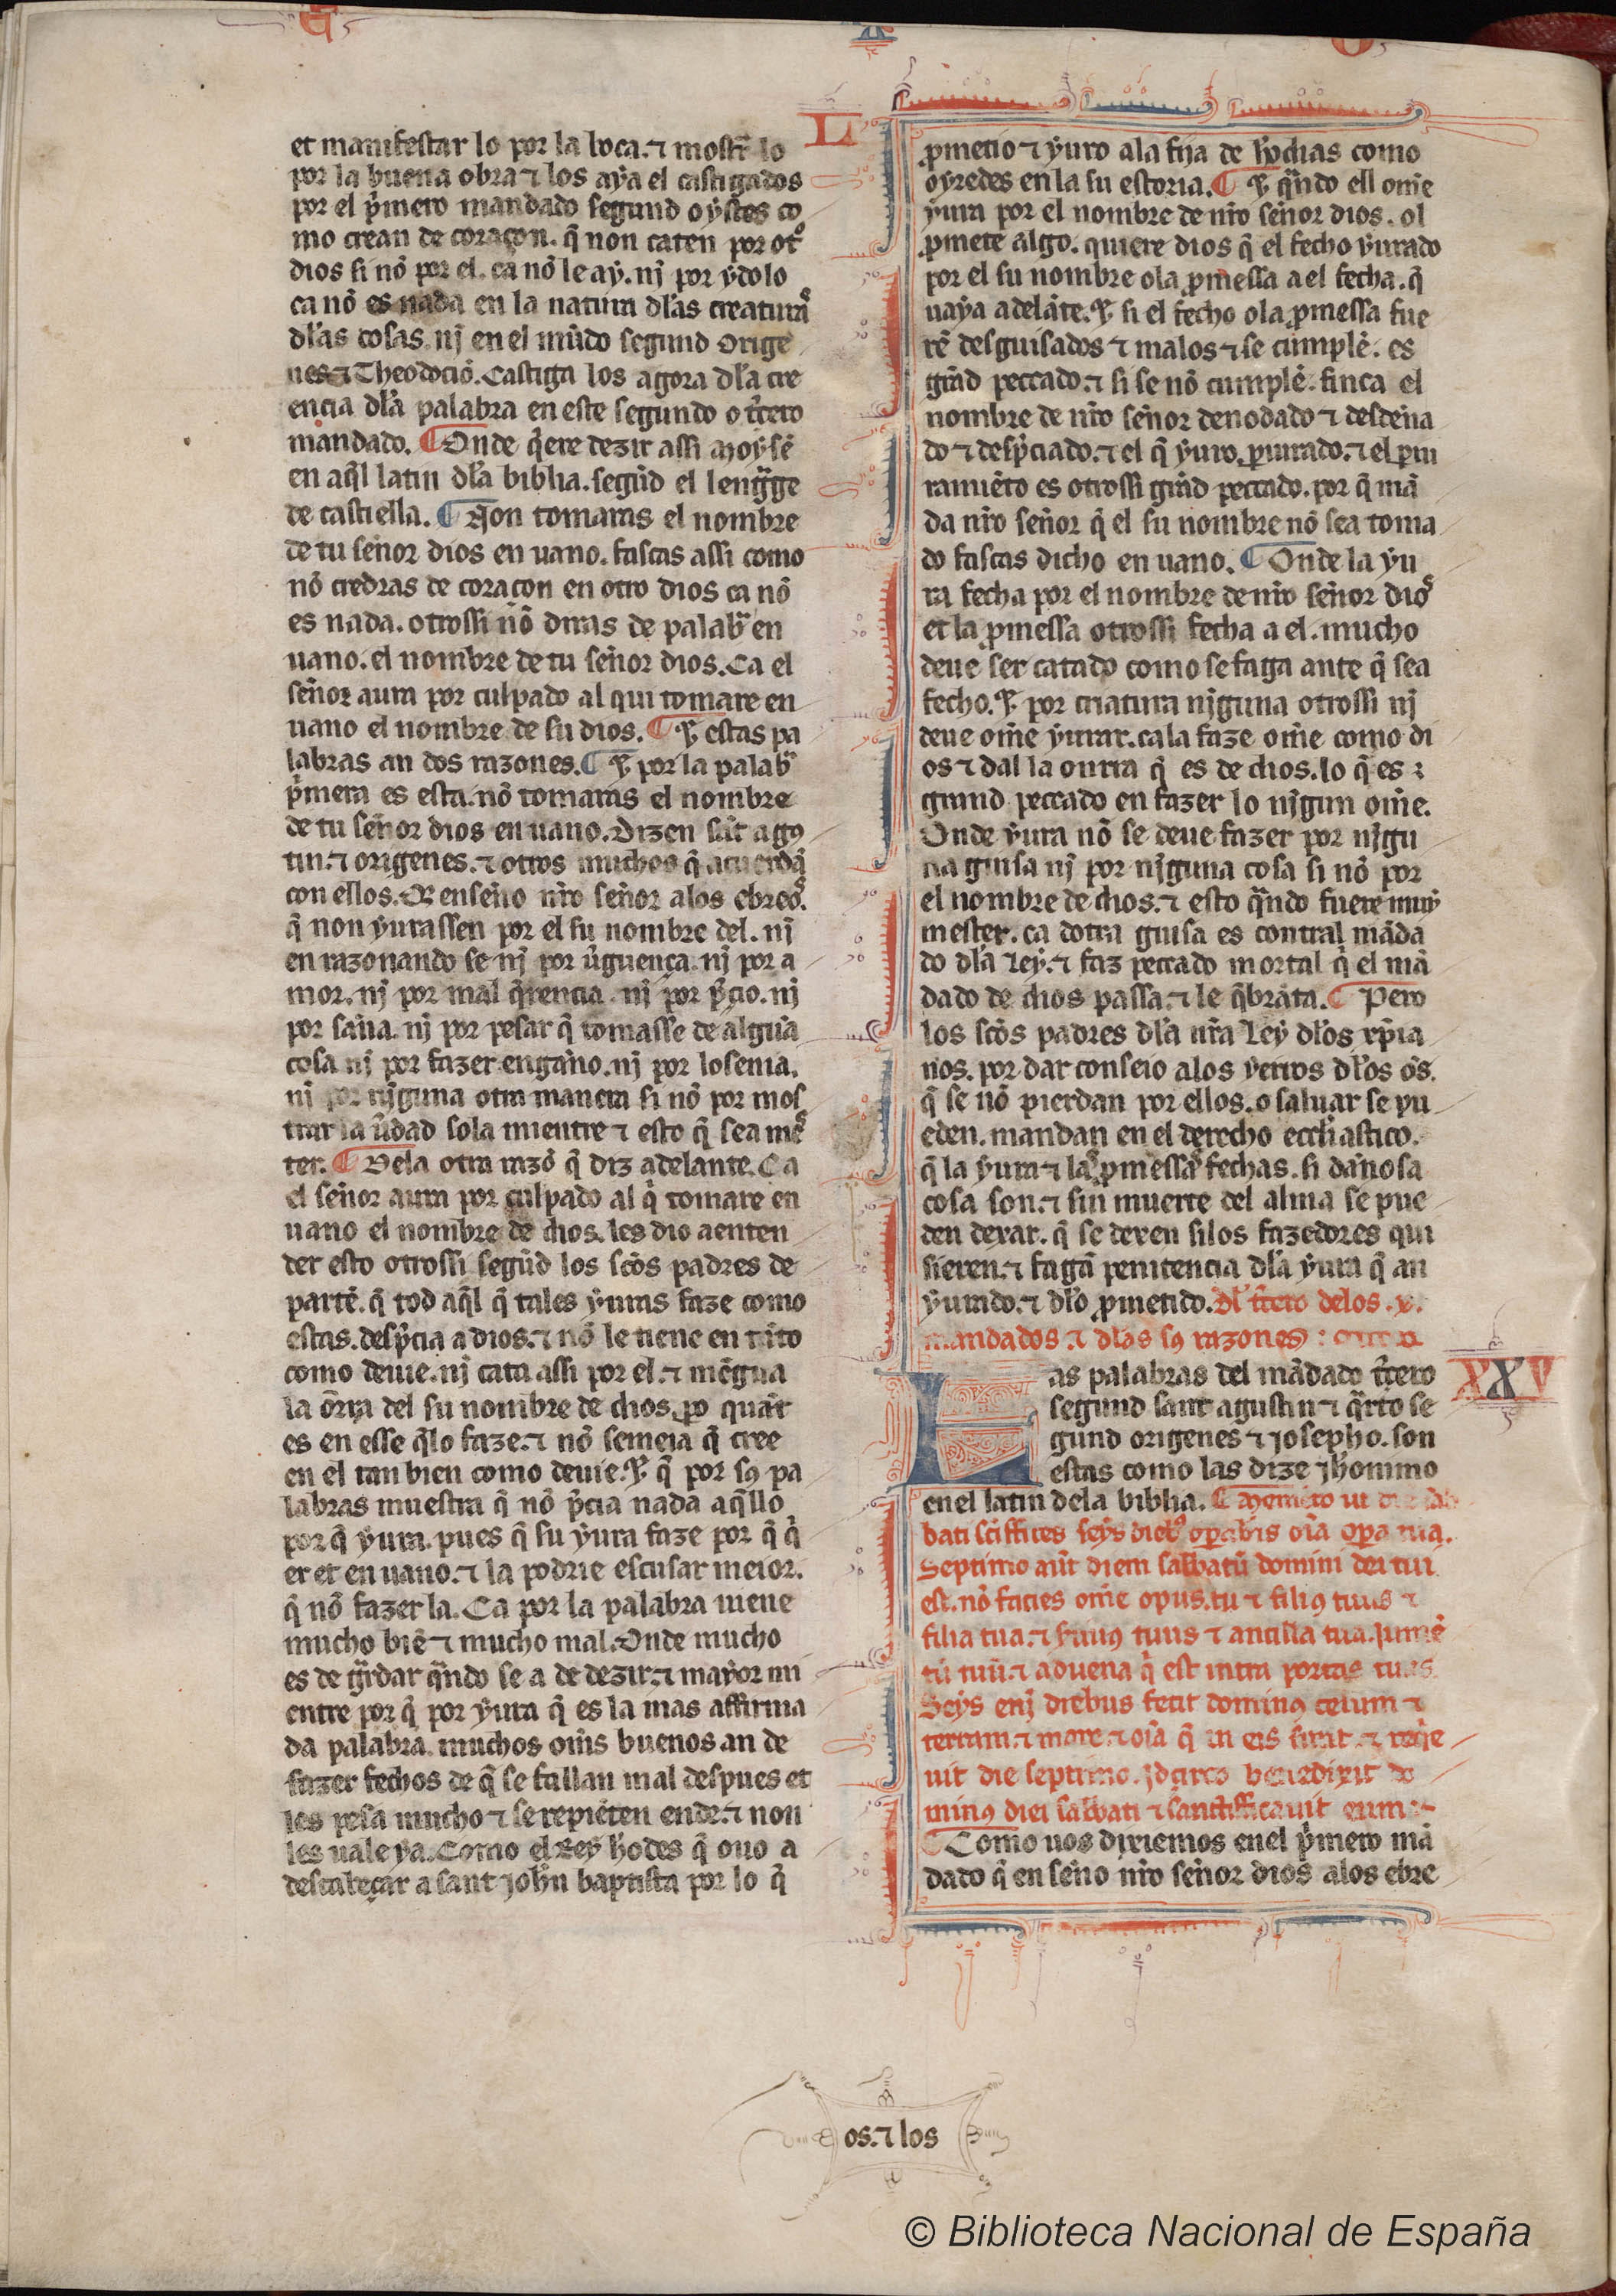 et manifestar lo por la boca. ⁊ mostr̃ lo
por la buena obra ⁊ los aya el castigados
por el p̃mero mandado segund oystes co
mo crean de coraçon. q̃ non caten por ot͛
dios si nõ por el. ca nõ le ay. nj por ydolo
ca nõ es nada en la natura dl̃as creatur͛
dl̃as cosas. nj en el mũdo segund Orige
nes ⁊ Theodociõ. Castiga los agora dl̃a cre
encia dl̃a palabra en este segundo o t̃cero
mandado. ¶ Onde q̃ere dezir assi Moysẽ
en aq̃l latin dl̃a biblia. segũd el lengũge
de castiella. ¶ Non tomaras el nombre
de tu señor dios en uano. fascas assi como
nõ credras de coraçon en otro dios ca nõ
es nada. otrossi nõ diras de palab̃ en
uano. el nombre de tu señor dios. Ca el
señor aura por culpado al qui tomare en
uano el nombre de su dios. ¶ E estas pa
labras an dos razones. ¶ E por la palab̃
p̃mera es esta. nõ tomaras el nombre
de tu señor dios en uano. Dizen sãt agꝰ
tin. ⁊ origenes. ⁊ otros muchos q̃ acuerdã
con ellos. Q̃ enseño nr̃o señor alos ebreo͛.
q̃ non yurassen por el su nombre del. nj
en razonando se nj por ũguença. nj por a
mor. nj por mal q̃rencia. nj por p̃cio. nj
por saña. nj por pesar q̃ tomasse de algũa
cosa nj por fazer engaño. nj por losenia.
nj por njguna otra manera si nõ por mos
trar la ũdad sola mientre ⁊ esto q̃ sea me͛
ter. ¶ Dela otra razõ q̃ diz adelante. Ca
el señor aura por culpado al q̃ tomare en
uano el nombre de dios. les dio a enten
der esto otrossi segũd los sc̃os padres de
partẽ. q̃ tod aq̃l q̃ tales yuras faze como
estas. desp̃cia a dios. ⁊ nõ le tiene en tãto
como deue. nj cata assi por el. ⁊ mẽgua
la õrra del su nombre de dios. ꝑo quãt
es en esse q̃lo faze. ⁊ nõ semeia q̃ cree
en el tan bien como deuie. E q̃ por sꝰ pa
labras muestra q̃ nõ p̃cia nada aq̃llo
por q̃ yura. pues q̃ su yura faze por q̃ q̃
er et en uano. ⁊ la podrie escusar meior.
q̃ nõ fazer la. Ca por la palabra uiene
mucho biẽ ⁊ mucho mal. Onde mucho
es de gũrdar qũndo se a de dezir. ⁊ mayor mi
entre por q̃ por yura q̃ es la mas affirma
da palabra. muchos oms̃ buenos an de
fazer fechos de q̃ se fallan mal despues et
les pesa mucho ⁊ se repiẽten ende. ⁊ non
les uale ya. Como el Rey herodes q̃ ouo a
descabeçar a sant Joh̃n baptista por lo q̃
ꝓmetio ⁊ yuro ala fija de
oyredes en la su estoria. ¶ E qũndo ell om̃e
yura por el nombre de nr̃o señor dios. ol
ꝓmete algo. quiere dios q̃ el fecho yurado
por el su nombre o la ꝓmessa a el fecha. q̃
uaya adelãte. E si el fecho o la ꝓmessa fue
rẽ desguisados ⁊ malos ⁊ se cumplẽ. es
grãd peccado. ⁊ si se nõ cumplẽ. finca el
nombre de nr̃o señor denodado ⁊ desdeña
do ⁊ desp̃ciado. ⁊ el q̃ yuro. ꝑiurado. ⁊ el ꝑiu
ramiẽto es otrossi grãd peccado. por q̃ mã
da nr̃o señor q̃ el su nombre nõ sea toma
do fascas dicho en uano. ¶ Onde la yu
ra fecha por el nombre de nr̃o señor dio͛
et la ꝓmessa otrossi fecha a el. mucho
deue ser catado como se faga ante q̃ sea
fecho. E por criatura njguna otrossi nj
deue om̃e yurar. ca la faze om̃e como di
os ⁊ dal la onrra q̃ es de dios. lo q̃ es
grand peccado en fazer lo njgun om̃e.
Onde yura nõ se deue fazer por njgu
na guisa nj por njguna cosa si nõ por
el nombre de dios. ⁊ esto qũndo fuere muy
mester. ca dotra guisa es contral mãda
do dl̃a ley. ⁊ faz peccado mortal q̃ el mã
dado de dios passa. ⁊ le q̃brãta. ¶ Pero
los sc̃os padres dl̃a nr̃a Ley dl̃os xp̃ia
nos. por dar conseio alos yerros dl̃os os̃.
q̃ se nõ pierdan por ellos. o saluar se pu
eden. mandan en el derecho eccl̃iastico.
q̃ la yura ⁊ la͛ ꝓmessa͛ fechas. si dañosa
cosa son. ⁊ sin muerte del alma se pue
den dexar. q̃ se dexen si los fazedores qui
sieren. ⁊ fagã penitencia dl̃a yura q̃ an
yurado. ⁊ dl̃o ꝓmetido. Dl̃ t̃cero delos .x.
mandados. ⁊ dl̃as sꝰ razones:
XXV
Las palabras del mãdado t̃cero
segund sant agustin ⁊ q̃rto se
gund origenes ⁊ Josepho. son
estas como las dize Jheronimo
en el latin dela biblia. ¶ Memẽto ut diẽ sab
bati sc̃iffices seys dieb͛ oꝑabis oĩa oꝑa tua.
Septimo aũt diem sabbatũ domini dei tui
est. nõ facies om̃e opus. tu ⁊ filiꝰ tuus ⁊
filia tua. ⁊ s̃uuꝰ tuus ⁊ ancilla tua. Jumẽ
tũ tuũ. ⁊ aduena q̃ est intra portas tuas
Seys enj diebus fecit dominꝰ celum ⁊
terram. ⁊ mare. ⁊ oĩa q̃ in eis sunt. ⁊ req̃e
uit die septimo. Jdcirco benedixit do
minꝰ diei sabbati ⁊ sanctifficauit eum:-
¶ Como uos dixiemos en el p̃mero mã
dado q̃ enseño nr̃o señor dios alos ebre
os. ⁊ los
© Biblioteca Nacional de España